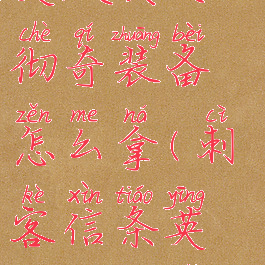 chè qí zhuāng bèi
彻奇装备
zěn me ná cì
怎么拿(刺
kè xìn tiáo yīng
客信条英